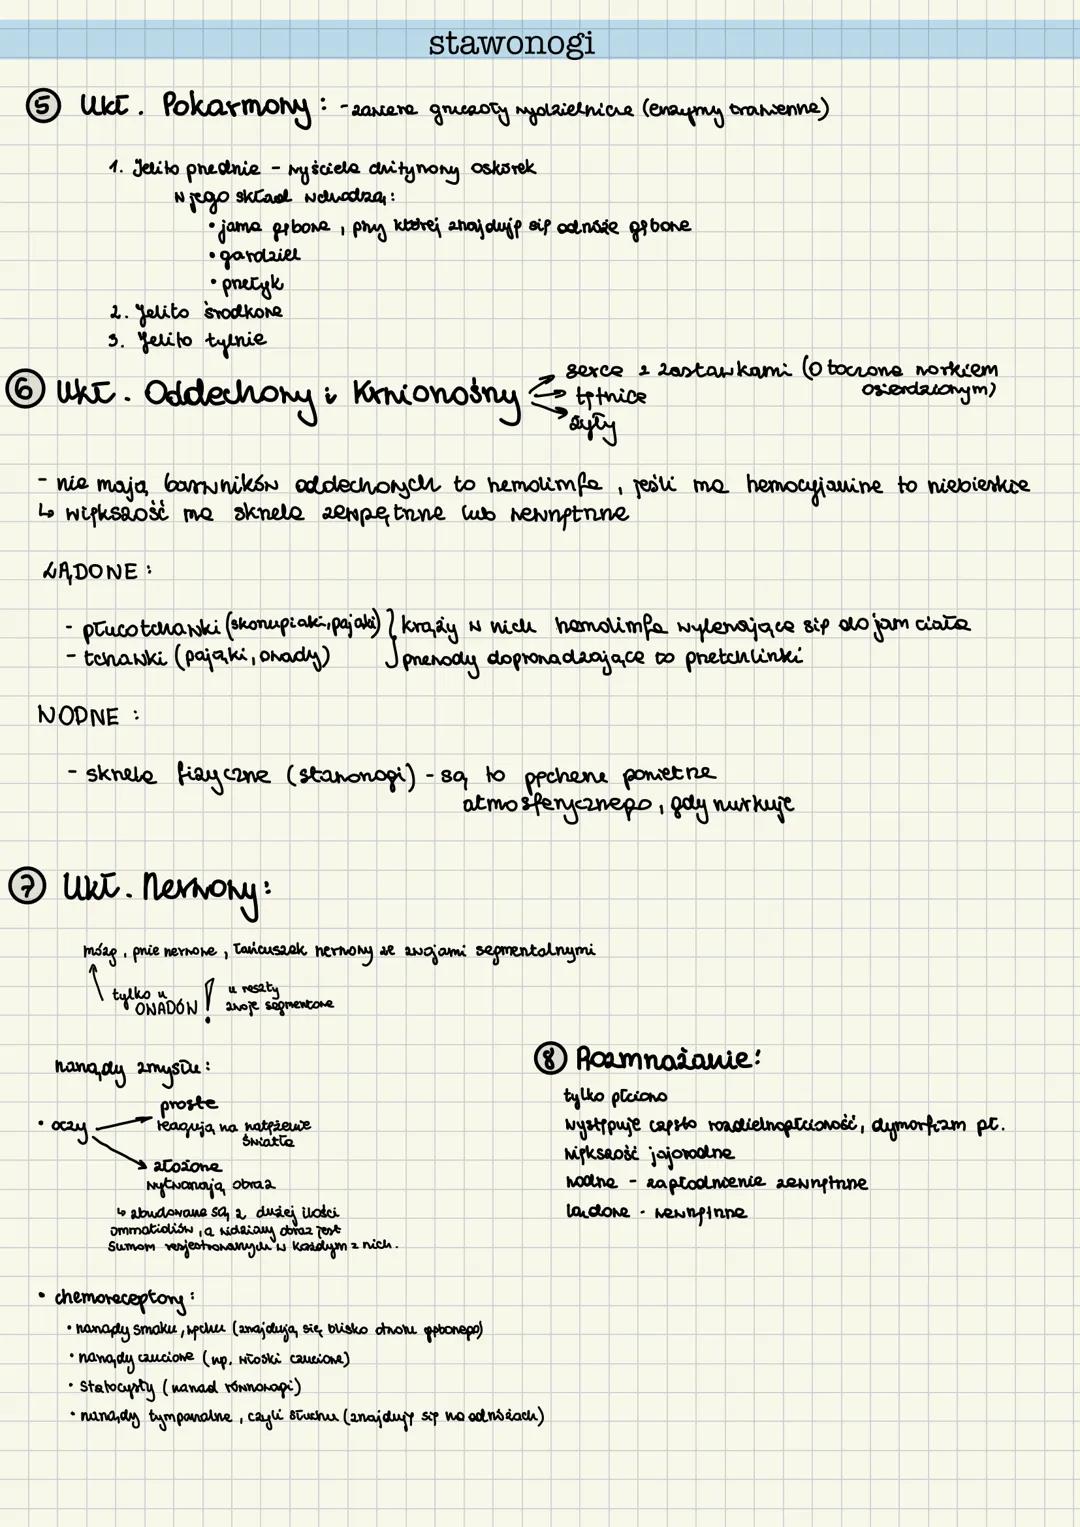 stawonogi
⑤ Ukł. Pokarmowy: - zawiera gruczoły wydzielnicze (enzymy trawienne)
1. Jelito przednie - wyściela chitynowy oskórek
w jego skład wchodzą:
• jama gębowa, przy której znajduję się odnóże gębowe
• gardziel
• przełyk
2. Jelito środkowe
3. Jelito tylnie
⑥ Ukł. Oddechowy i Krwionośny → serce z zastawkami (otoczone workiem osierdziowym)
→ tętnice
→ żyły
- nie mają barwników oddechowych to hemolimfa, jeśli ma hemocyjaninę to niebieskie
↳ większość ma skrzela zewnętrzne lub wewnętrzne
LĄDOWE:
- płucotchawki (skorupiaki, pająki) } krąży w nich hemolimfa wylewająca się do jam ciała
- tchawki (pająki, owady) } przewody doprowadzające to pretchlinki
WODNE:
- skrzela fizyczne (stawonogi) - są to pęcherze powietrza
atmosferycznego, gdy nurkuje
⑦ Ukł. Nerwowy:
mózg, pnie nerwowe, łańcuszek nerwowy ze zwojami segmentalnymi
↑ tylko u OWADÓW ! u reszty zwoje segmentowe
narządy zmysłu:
• oczy → proste
reagują na natężenie
światła
→ złożone
wytwarzają obraz
↳ zbudowane są z dużej ilości
ommatidiów, a widziany obraz jest
sumom rejestrowanych w każdym z nich.
• chemoreceptory:
• narządy smaku, węchu (znajdują się blisko otworu gębowego)
• narządy czuciowe (np. włoski czuciowe)
• statocysty (narząd równowagi)
• narządy tympanalne, czyli słuchu (znajduję się na odnóżach)
⑧ Rozmnażanie:
tylko płciowo
występuje często rozdzielnopłciowość, dymorfizm pł.
większość jajorodne
wodne - zapłodnienie zewnętrzne
lądowe - wewnętrzne